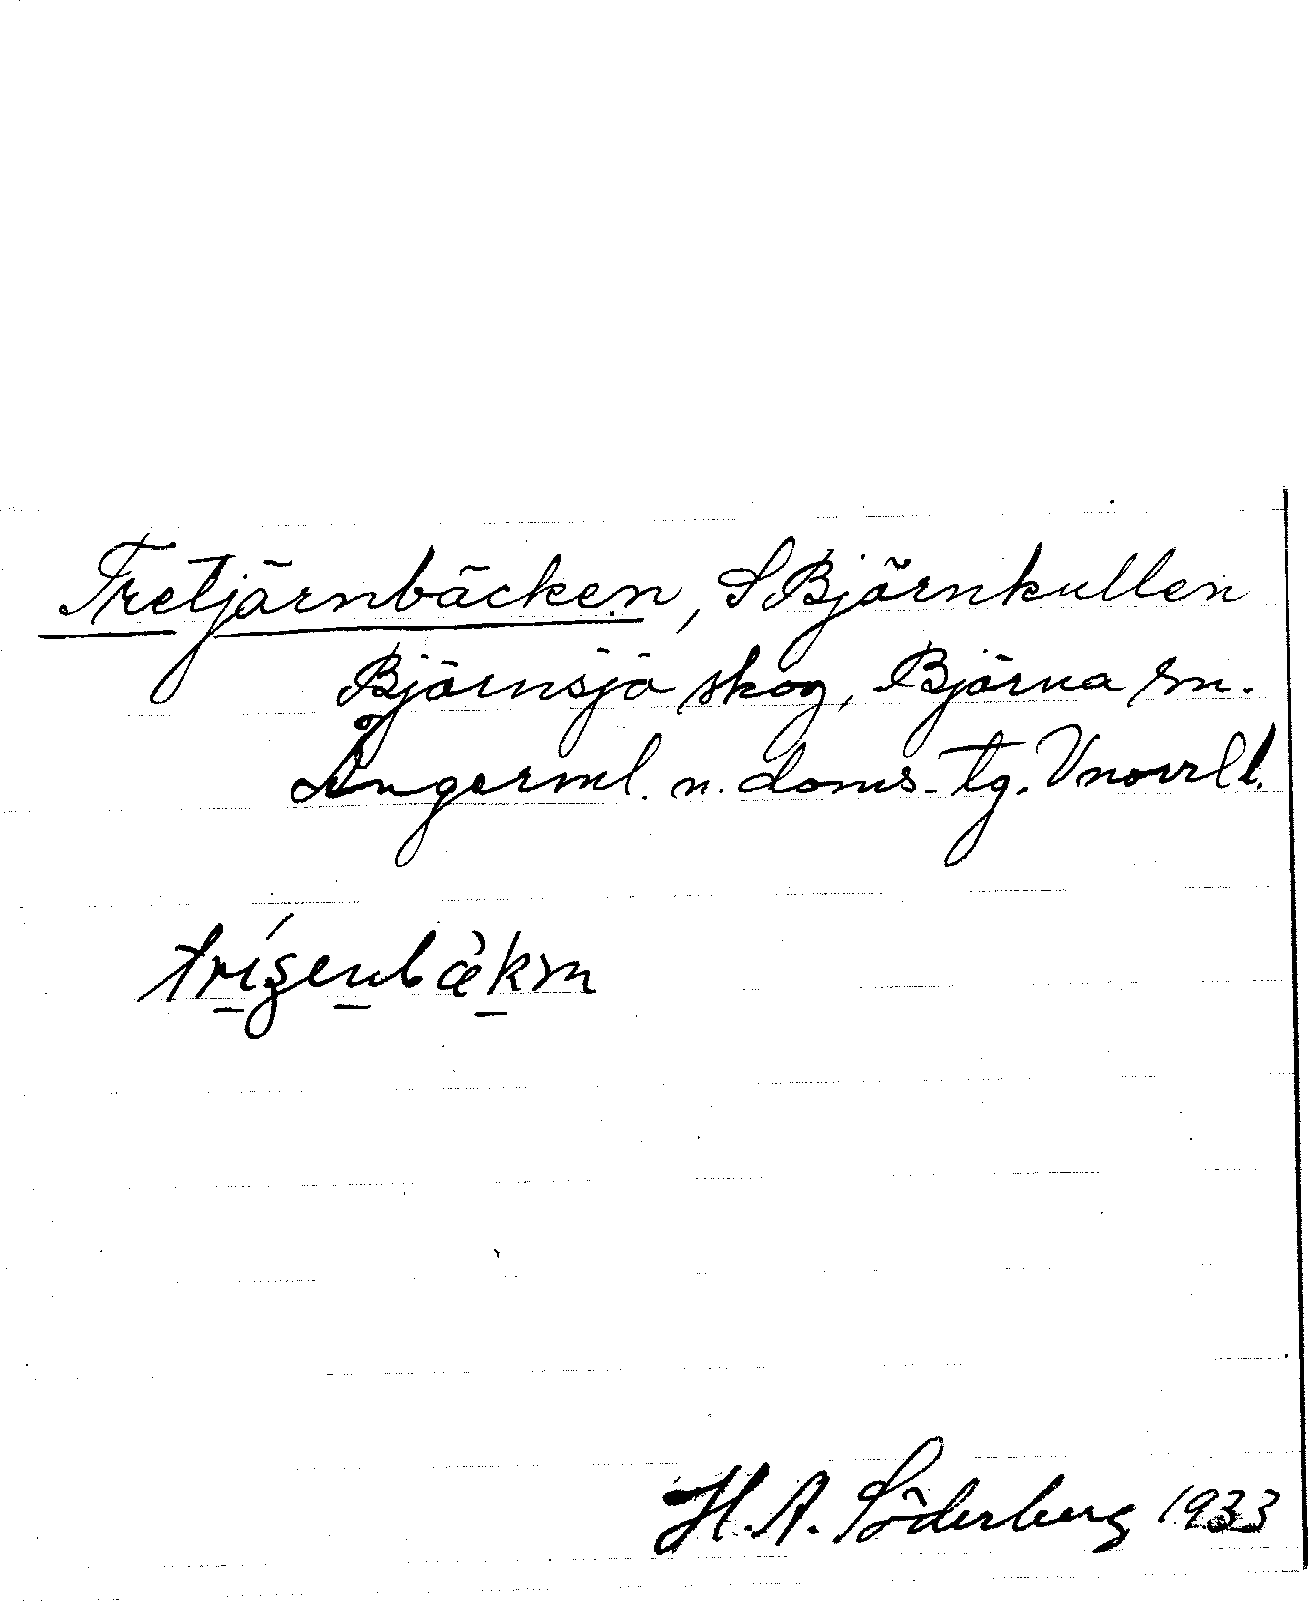 Tretjärnbäcken, S Björnkullen
Björnsjö skog, Björna sn.
Ångerml. n. doms. tg. Vnorrl l.
trísenbæ̀km
H. A. Söderberg 1933